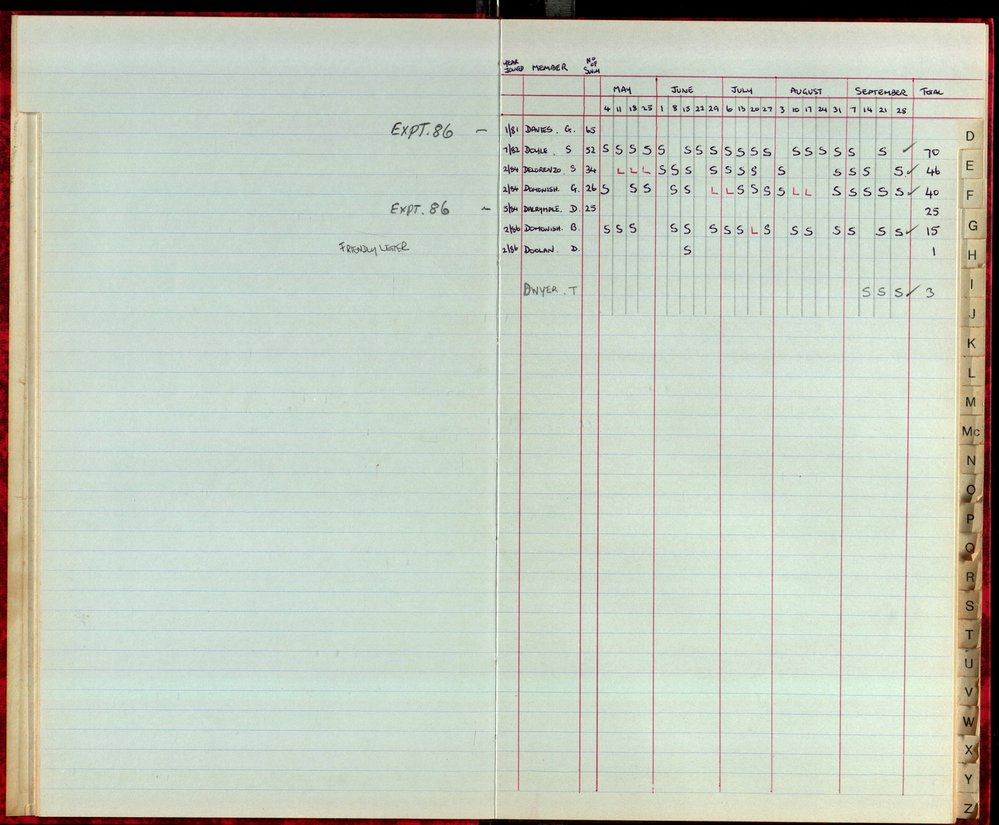 YEAR JOINED MEMBER NO OF SWIM
MAY JUNE JULY AUGUST SEPTEMBER TOTAL
4 11 18 25 1 8 15 22 29 6 13 20 27 3 10 17 24 31 7 14 21 28
EXPT. 86 – 1/81 DAVIES. G. 65
7/82 DOYLE. S 52 S S S S S S S S S S S S S S S S S S ✓ 70
2/84 DELORENZO. S 34 L L L S S S S S S S S S S S S ✓ 46
2/84 DOMONISH. G. 26 S S S S S L L S S S S L L S S S S S ✓ 40
EXPT. 86 – 5/84 DALRYMPLE. D. 25 25
2/86 DOMONISH. B. S S S S S S S S L S S S S S S S ✓ 15
FRIENDLY LETTER 2/86 DOOLAN D. S 1
DWYER. T S S S ✓ 3
D
E
F
G
H
I
J
K
L
M
Mc
N
O
P
Q
R
S
T
U
V
W
X
Y
Z